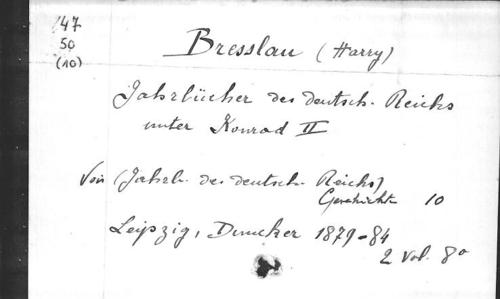 47
50
(10)
Bresslau (Harry)
Jahrbücher des deutsch. Reichs
unter Konrad II
Voir (Jahrb. des deutsch. Reichs)
Geschichte 10
Leipzig, Duncker 1879-84
2 vol. 8°